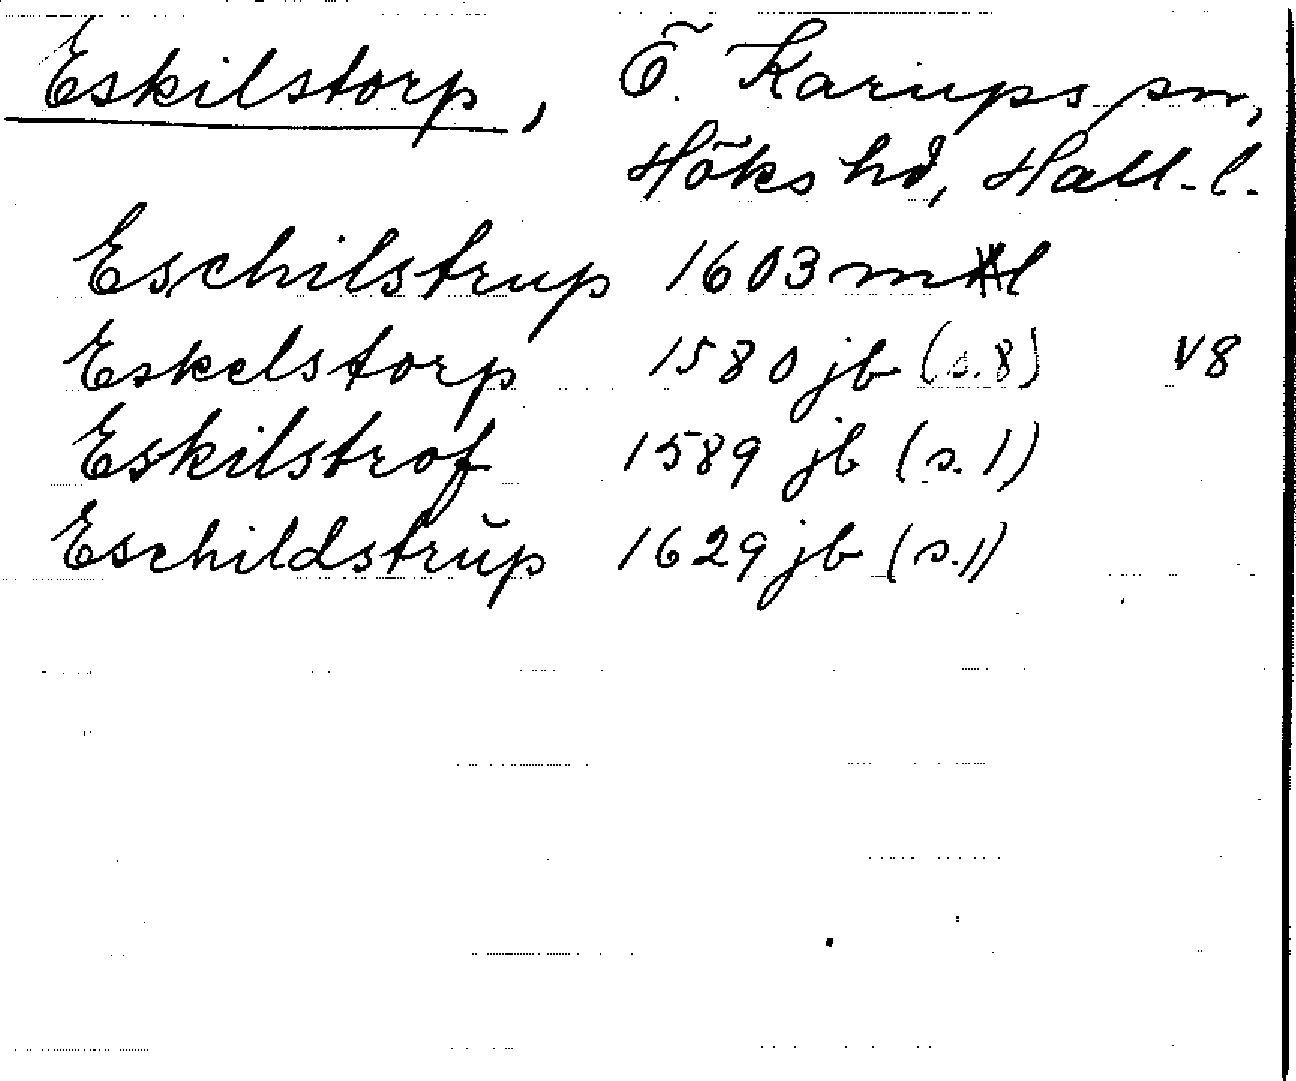 Eskilstorp, Ö. Karups sn,
Höks hd, Hall. l.
Eschilstrup 1603 mtl
Eskelstorp 1580 jb (s. 8) V8
Eskilstrof 1589 jb (s. 1)
Eschildstrŭp 1629 jb (s. 1)